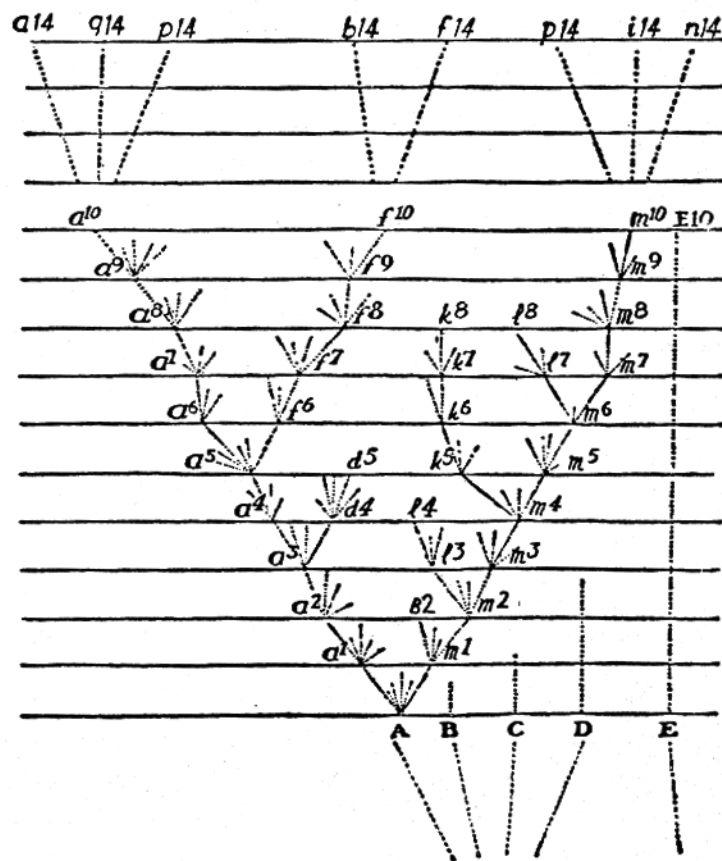 a14 q14 p14 b14 f14 p14 i14 n14
a10 f10 m10 E10
a9 f9 m9
a8 f8 k8 l8 m8
a7 f7 k7 l7 m7
a6 f6 k6 m6
a5 d5 k5 m5
a4 d4 l4 m4
a3 l3 m3
a2 B2 m2
a1 m1
A B C D E